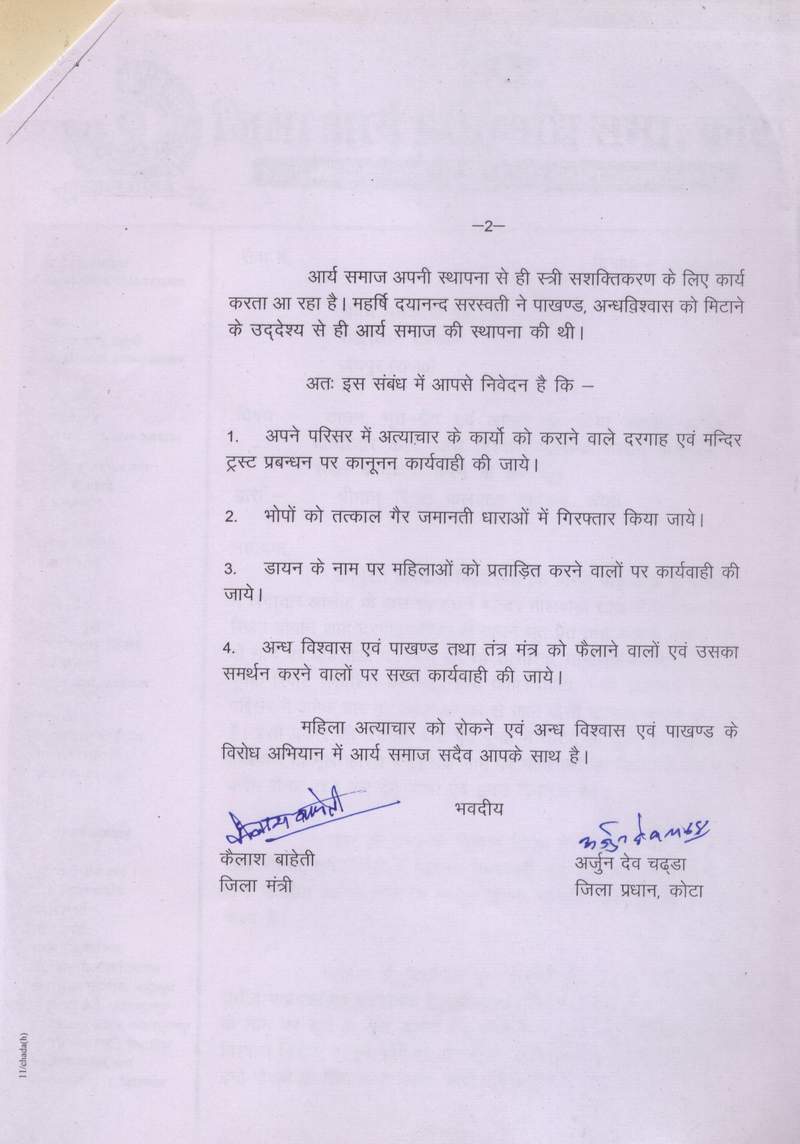 –2–
आर्य समाज अपनी स्थापना से ही स्त्री सशक्तिकरण के लिए कार्य
करता आ रहा है। महर्षि दयानन्द सरस्वती ने पाखण्ड, अन्धविश्वास को मिटाने
के उद्देश्य से ही आर्य समाज की स्थापना की थी।
अतः इस संबंध में आपसे निवेदन है कि –
1. अपने परिसर में अत्याचार के कार्यो को कराने वाले दरगाह एवं मन्दिर
ट्रस्ट प्रबन्धन पर कानूनन कार्यवाही की जाये।
2. भोपों को तत्काल गैर जमानती धाराओं में गिरफ्तार किया जाये।
3. डायन के नाम पर महिलाओं को प्रताड़ित करने वालों पर कार्यवाही की
जाये।
4. अन्ध विश्वास एवं पाखण्ड तथा तंत्र मंत्र को फैलाने वालों एवं उसका
समर्थन करने वालों पर सख्त कार्यवाही की जाये।
महिला अत्याचार को रोकने एवं अन्ध विश्वास एवं पाखण्ड के
विरोध अभियान में आर्य समाज सदैव आपके साथ है।
भवदीय
कैलाश बांहेती
जिला मंत्री
अर्जुन देव चढ्डा
जिला प्रधान, कोटा
11/chada(h)